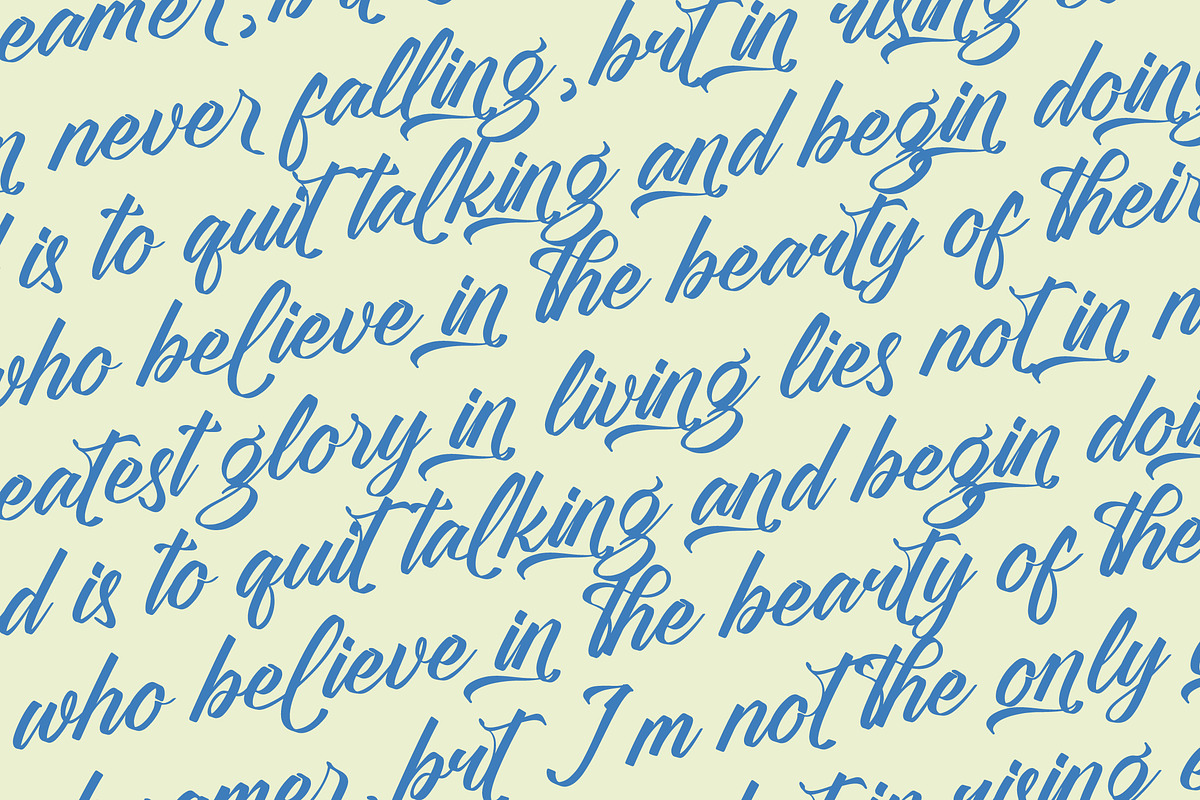 eamer, bu
n never falling, but in rising e
d is to quit talking and begin doing
who believe in the beauty of their
eatest glory in living lies not in n
d is to quit talking and begin doin
who believe in the beauty of the
reamer, but I m not the only
but in rising e